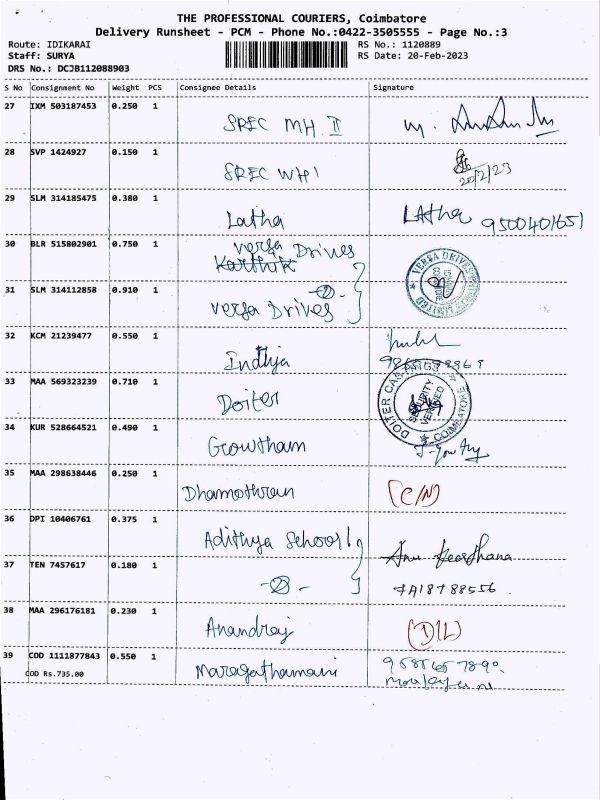 THE PROFESSIONAL COURIERS, Coimbatore
Delivery Runsheet - PCM - Phone No.:0422-3505555 - Page No.:3
Route: IDIKARAI RS No.: 1120889
Staff: SURYA RS Date: 20-Feb-2023
DRS No.: DCJB112088903
S No Consignment No Weight PCS Consignee Details Signature
27 IXM 503187453 0.250 1
SREC MH II
28 SVP 1424927 0.150 1
SREC WH1 20/2/23
29 SLM 314185475 0.380 1
Latha LAtha 9500401651
30 BLR 515802901 0.750 1
Versa Drives
Karthik
VERSA DRIVES PRIVATE LIMITED
31 SLM 314112858 0.910 1
-2-
versa Drives
32 KCM 21239477 0.550 1
Indhja
33 MAA 569323239 0.710 1
Doiter
DOITER CASTINGS
SECURITY
VERIFIED
COIMBATORE
34 KUR 528664521 0.490 1
Growtham
35 MAA 298638446 0.250 1
Dhamothran (C/N)
36 DPI 10406761 0.375 1
Adithya School
37 TEN 7457617 0.180 1
-2-
38 MAA 296176181 0.230 1
Anandraj (D/L)
39 COD 1111877843 0.550 1
COD Rs.735.00
Maragathamani